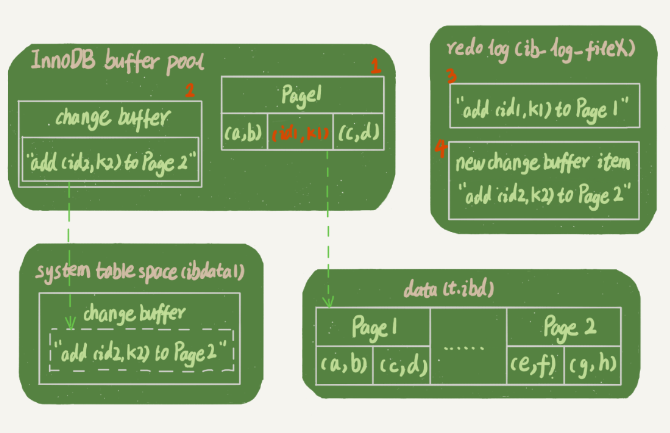 InnoDB buffer pool
1
2
Page1
(a,b) (id1,k1) (c,d)
change buffer
"add (id2,k2) to Page 2"
redo log (ib-log-fileX)
3
"add (id1,k1) to Page 1"
4
new change buffer item
"add (id2,k2) to Page 2"
system table space (ibdata1)
change buffer
"add (id2,k2) to Page 2"
data (t.ibd)
Page 1 ...... Page 2
(a,b) (c,d) (e,f) (g,h)